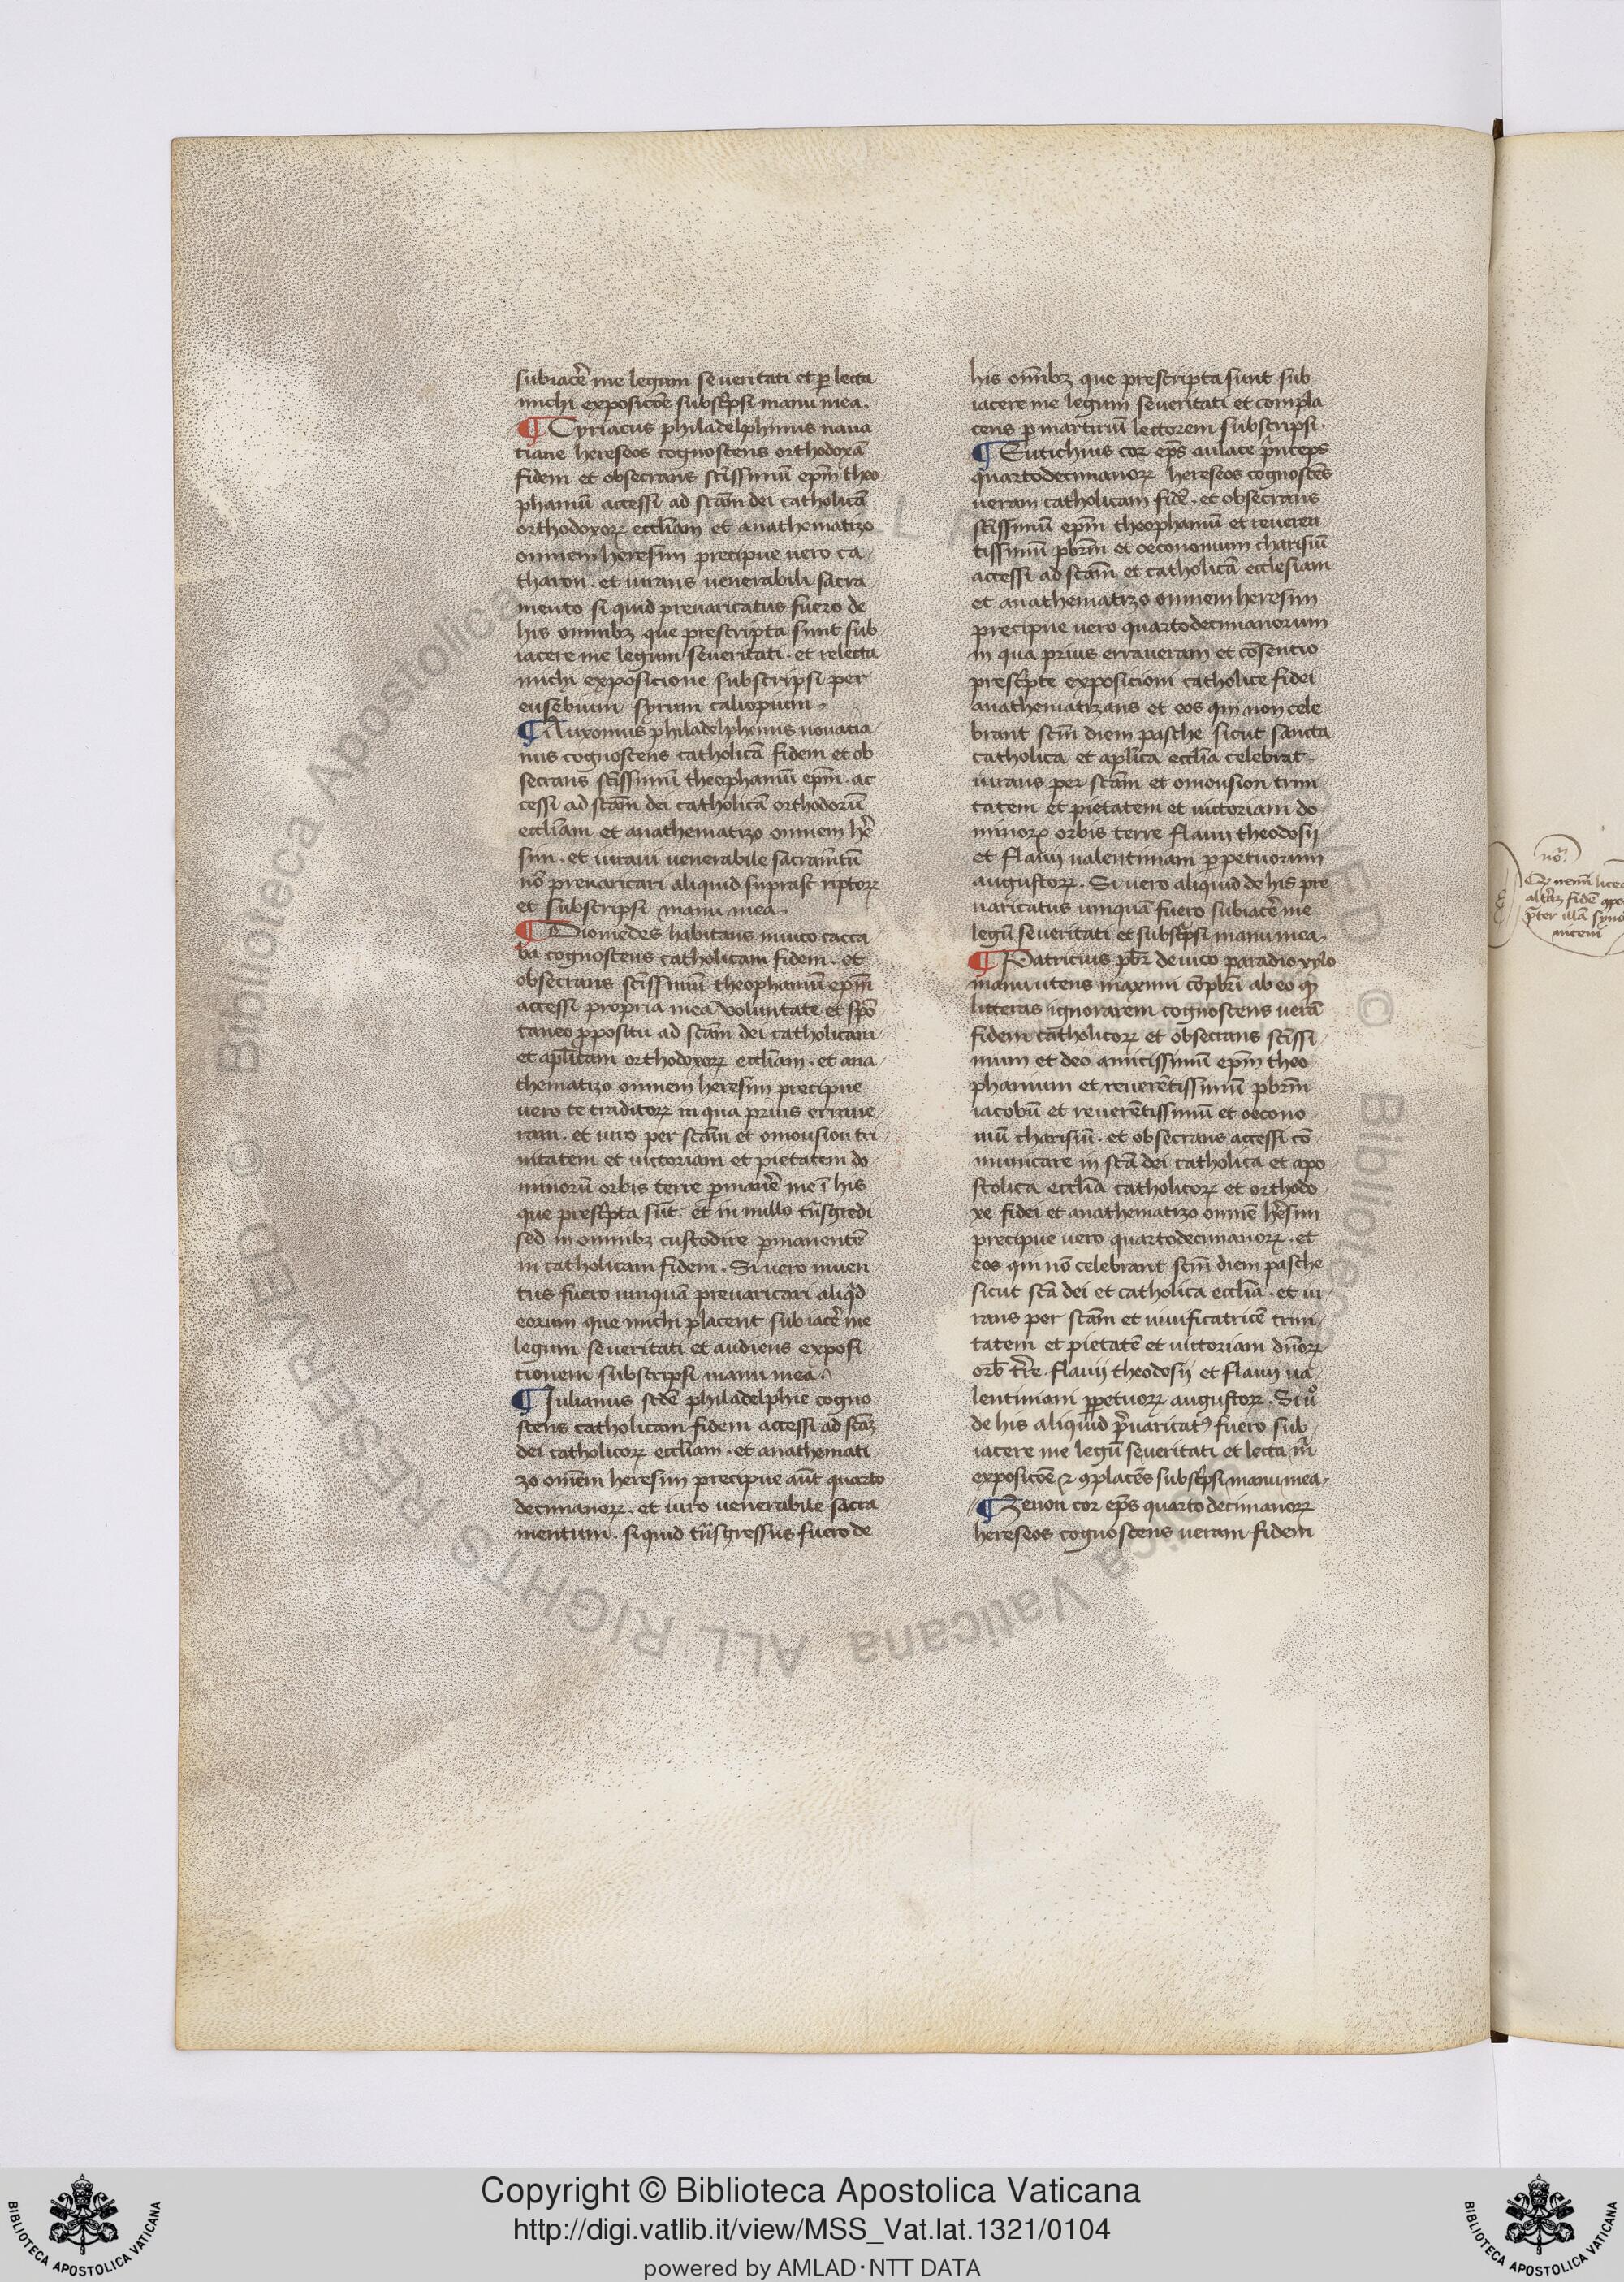 subiacẽ me legum seueritati et ꝑ lecta
michi exposicoẽ subscͥpsi manu mea.
¶ Cyriacus philadelphinus naua
ciane hereseos cognoscens orthodoxã
fidem et obsecrans scĩssimũ epm̃ theo
phaniũ accessi ad scãm dei catholicã
orthodoxoꝝ eccliãm et anathematizo
omnem heresim precipue uero ca
tharon. et iurans uenerabili sacra
mento si quid preuaricatus fuero de
his omnibꝫ que prescripta sunt sub
iacere me legum seueritati. et relecta
michi exposicione subscripsi per
eusebium syrum caliopum.
¶ Auxonius philadelphenus nouacia
nus cognoscens catholicã fidem et ob
secrans scĩssimũ theophaniũ epm̃. ac
cessi ad scãm dei catholicã orthodorũ
eccliãm et anathematizo omnem hẽ
sim. et iuraui uenerabile sacramẽtũ
nõ preuaricari aliquid suprascriptoꝝ
et subscripsi manu mea.
¶ Diomedes habitans in uico cacca
ba cognoscens catholicam fidem. et
obsecrans scĩssimũ theophaniũ epm̃
accessi propria mea voluntate et spõ
taneo ꝓpositu ad scãm dei catholicam
et aplicãm orthodoxoꝝ eccliãm. et ana
thematizo omnem heresim precipue
uero te traditoꝝ in qua prius erraue
ram. et iuro per scãm et omousion tri
nitatem et uictoriam et pietatem do
minorũ orbis terre ꝑmanẽ me ĩ his
que prescͥpta sũt. et in nullo trãsgredi
sed in omnibꝫ custodire ꝑmanentẽ
in catholicam fidem. Si uero inuen
tus fuero umquã preuaricari aliqͥd
eorum que michi placent subiacẽ me
legum seueritati et audiens exposi
tionem subscripsi manu mea
¶ Iulianus scdẽ philadelphie cogno
scens catholicam fidem accessi ad scãꝫ
dei catholicoꝝ eccliãm. et anathemati
zo omẽm heresim precipue aũt quarto
decimanoꝝ. et iuro uenerabile sacra
mentum. si quid trãsgressus fuero de
his omĩbꝫ que prescripta sunt sub
iacere me legum seueritati et compla
cens ꝑ martiriũ lectorem subscripsi.
¶ Eutichius cor epũs aulace pͥnceps
quartodecimanoꝝ hereseos cognoscẽs
ueram catholicam fidẽ. et obsecrans
scĩssimũ epm̃ theophaniũ et reueren
tissimũ pbrm̃ et oeconomum charisiũ
accessi ad scãm et catholicã ecclesiam
et anathematizo omnem heresim
precipue uero quartodecimanorum
in qua prius erraueram et cõsentio
prescͥpte exposicioni catholice fidei
anathematizans et eos qui non cele
brant scm̃ diem pasche sicut sancta
catholica et aplica ecclia celebrat
iurans per scãm et omousion trini
tatem et pietatem et uictoriam do
minoꝝ orbis terre flauii theodosij
et flauij ualentiniani ꝑpetuorum
augustoꝝ. Si uero aliquid de his pre
uaricatus umquã fuero subiacẽ me
legũ seueritati et subscͥpsi manu mea.
¶ Patricius pbr̃ de uico paradioxylo
manu utens maximi cõpbr̃i ab eo qͥ
litteras ignorarem cognoscens uerã
fidem catholicoꝝ et obsecrans scĩssi
mum et deo amicissimũ epm̃ theo
phanium et reuerẽtissimũ pbrm̃
iacobũ et reuerẽtissimũ et oecono
mũ charisiũ. et obsecrans accessi cõ
municare in scã dei catholica et apo
stolica ecclia catholicoꝝ et orthodo
xe fidei et anathematizo omnẽ hẽsim
precipue uero quartodecimanoꝝ. et
eos qui nõ celebrant scm̃ diem pasche
sicut scã dei et catholica ecclia. et iu
rans per scãm et uiuificatricẽ trini
tatem et pietatẽ et uictoriam dñoꝝ
orb̃ tr̃re flauij theodosij et flauij ua
lentiniani ꝑpetuoꝝ augustoꝝ. Si uͦ
de his aliquid pͥuaricatꝰ fuero sub
iacere me legũ seueritati et lecta m̃
exposicoẽ ⁊ ꝯplacẽs subscͥpsi manu mea.
¶ Zenon cor epũs quartodecimanoꝝ
hereseos cognoscens ueram fidem
Copyright © Biblioteca Apostolica Vaticana
http://digi.vatlib.it/view/MSS_Vat.lat.1321/0104
powered by AMLAD·NTT DATA